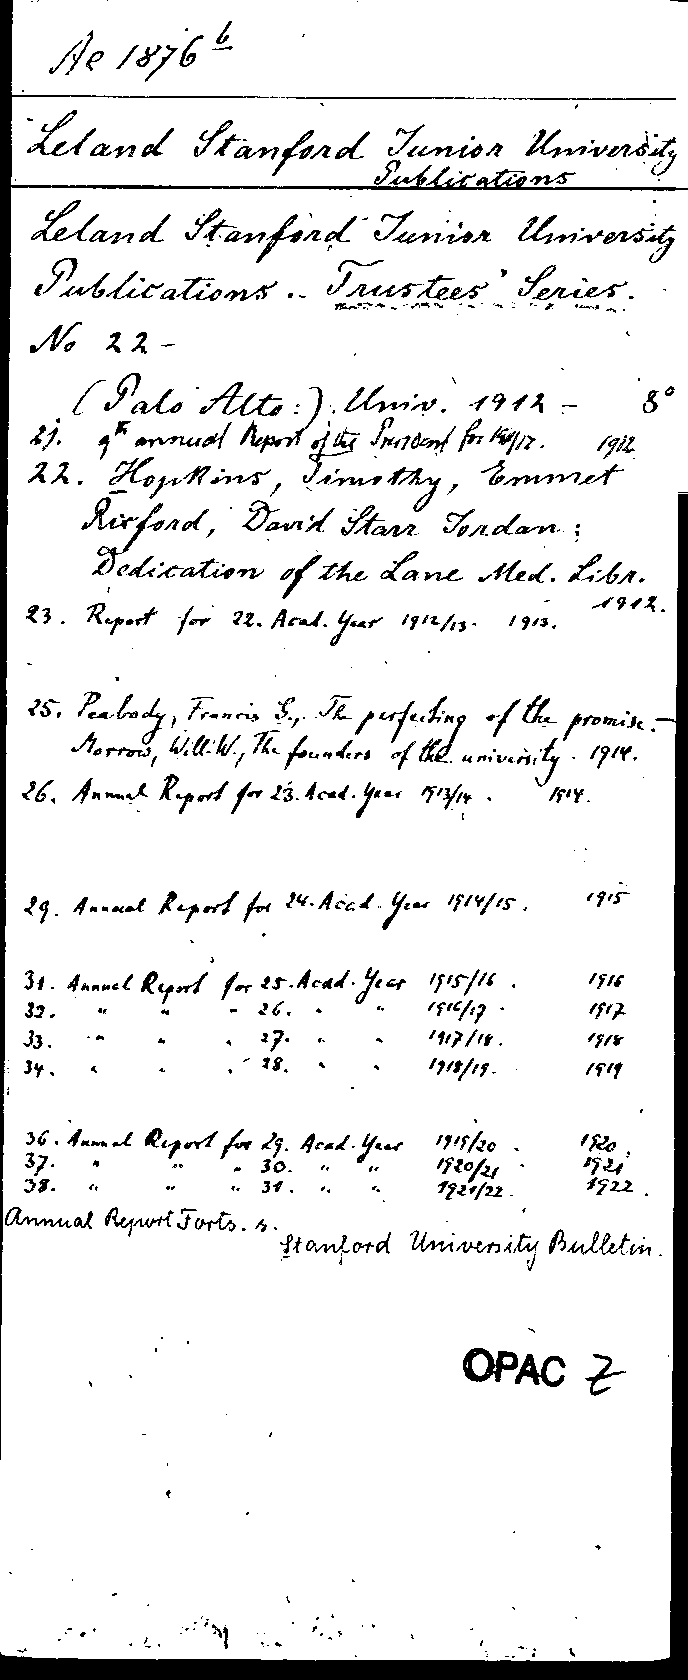 Ae 1876 b
Leland Stanford Junior University
Publications
Leland Stanford Junior University
Publications .. Trustees' Series.
No 22 -
(Palo Alto:) Univ. 1912 - 8°
21. 9th annual Report of the President for 1911/12. 1912
22. Hopkins, Timothy, Emmet
Rixford, David Starr Jordan:
Dedication of the Lane Med. Libr.
1912.
23. Report for 22. Acad. Year 1912/13. 1913.
25. Peabody, Francis G., The perfecting of the promise. -
Morrow, Will. W., The founders of the university. 1914.
26. Annual Report for 23. Acad. Year 1913/14. 1914.
29. Annual Report for 24. Acad. Year 1914/15. 1915
31. Annual Report for 25. Acad. Year 1915/16. 1916
32. " " " 26. " " 1916/17. 1917
33. " " " 27. " " 1917/18. 1918
34. " " " 28. " " 1918/19. 1919
36. Annual Report for 29. Acad. Year 1919/20. 1920.
37. " " " 30. " " 1920/21. 1921
38. " " " 31. " " 1921/22. 1922.
Annual Report Forts. s.
Stanford University Bulletin.
OPAC Z